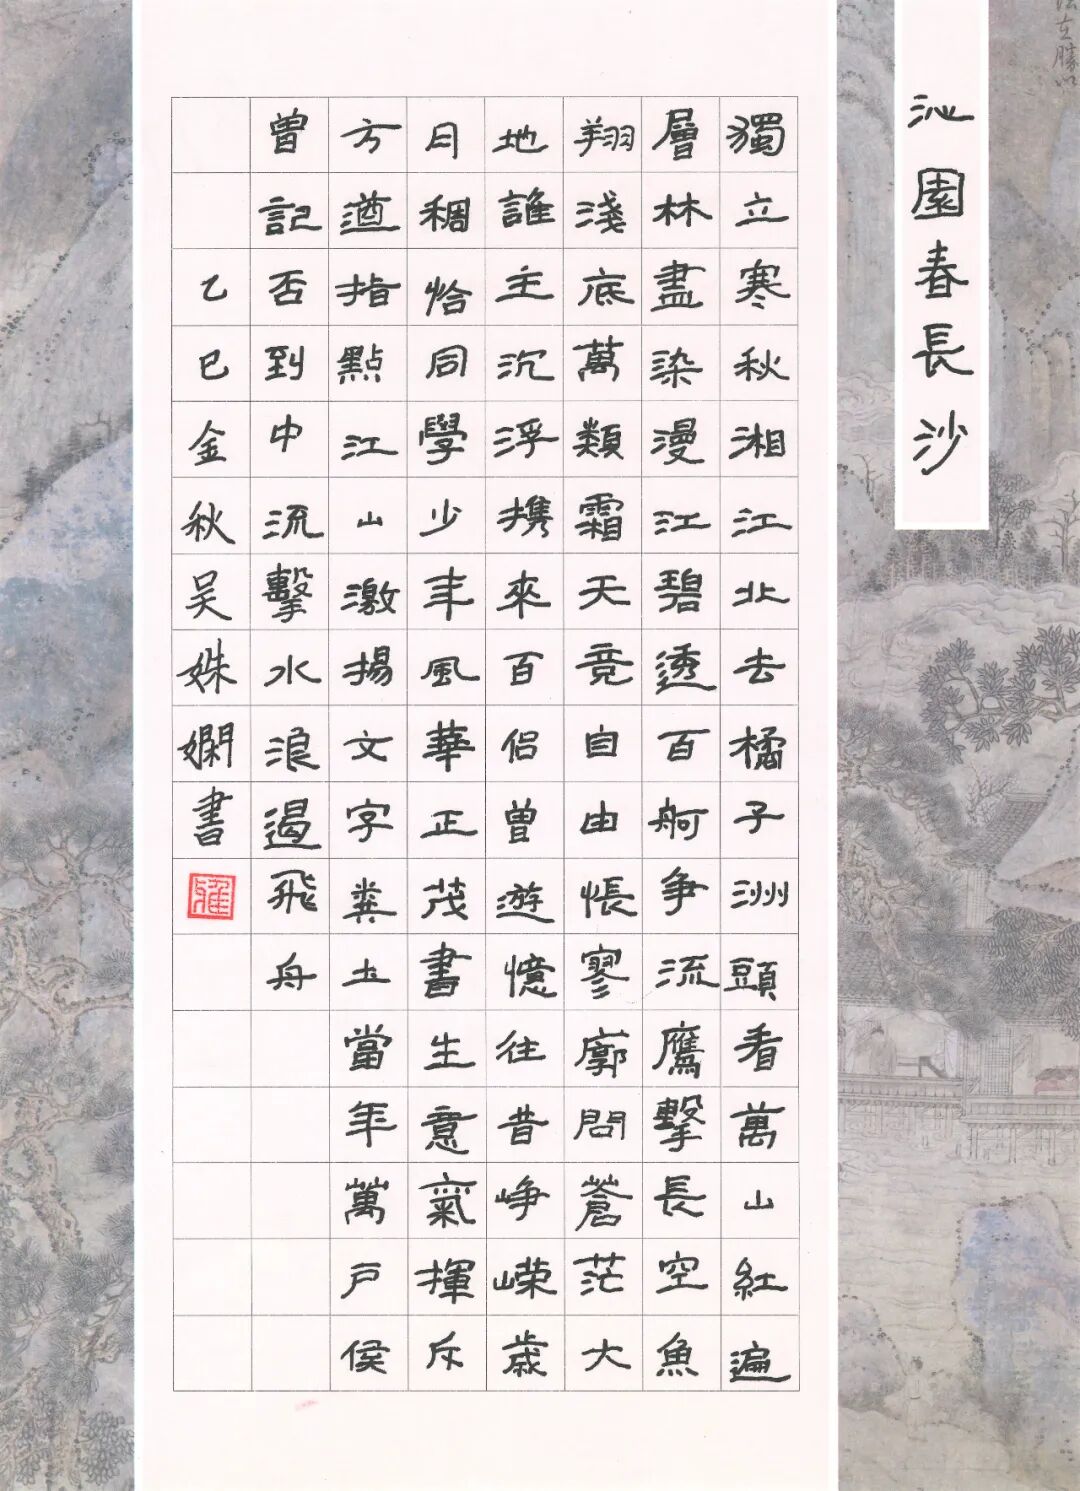 沁園春長沙
獨立寒秋湘江北去橘子洲頭看萬山紅遍
層林盡染漫江碧透百舸争流鷹擊長空魚
翔淺底萬類霜天竞自由悵寥廓問蒼茫大
地誰主沉浮携來百侣曾遊憶往昔峥嶸歲
月稠恰同學少年風華正茂書生意氣揮斥
方遒指點江山激揚文字糞土當年萬戶侯
曾記否到中流擊水浪遏飛舟
乙巳金秋吴姝嫻書